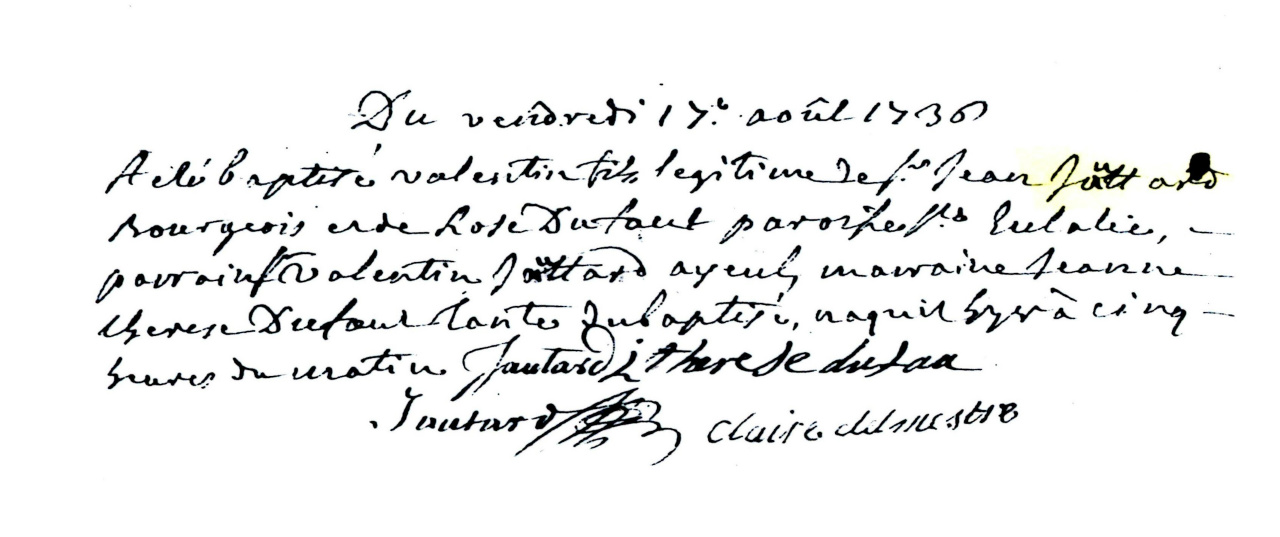 Du vendredi 17e août 1736
A été baptisé valentin fils legitime de sr Jean Jautard
Bourgeois et de Rose Dufaut paroisse ste Eulalie,
parrain valentin Jautard ayeul, marraine Jeanne
therese Dufaut tante du baptisé, naquit hyer à cinq
heures du matin Jautard j therese dufau
Jautard claire delmestre